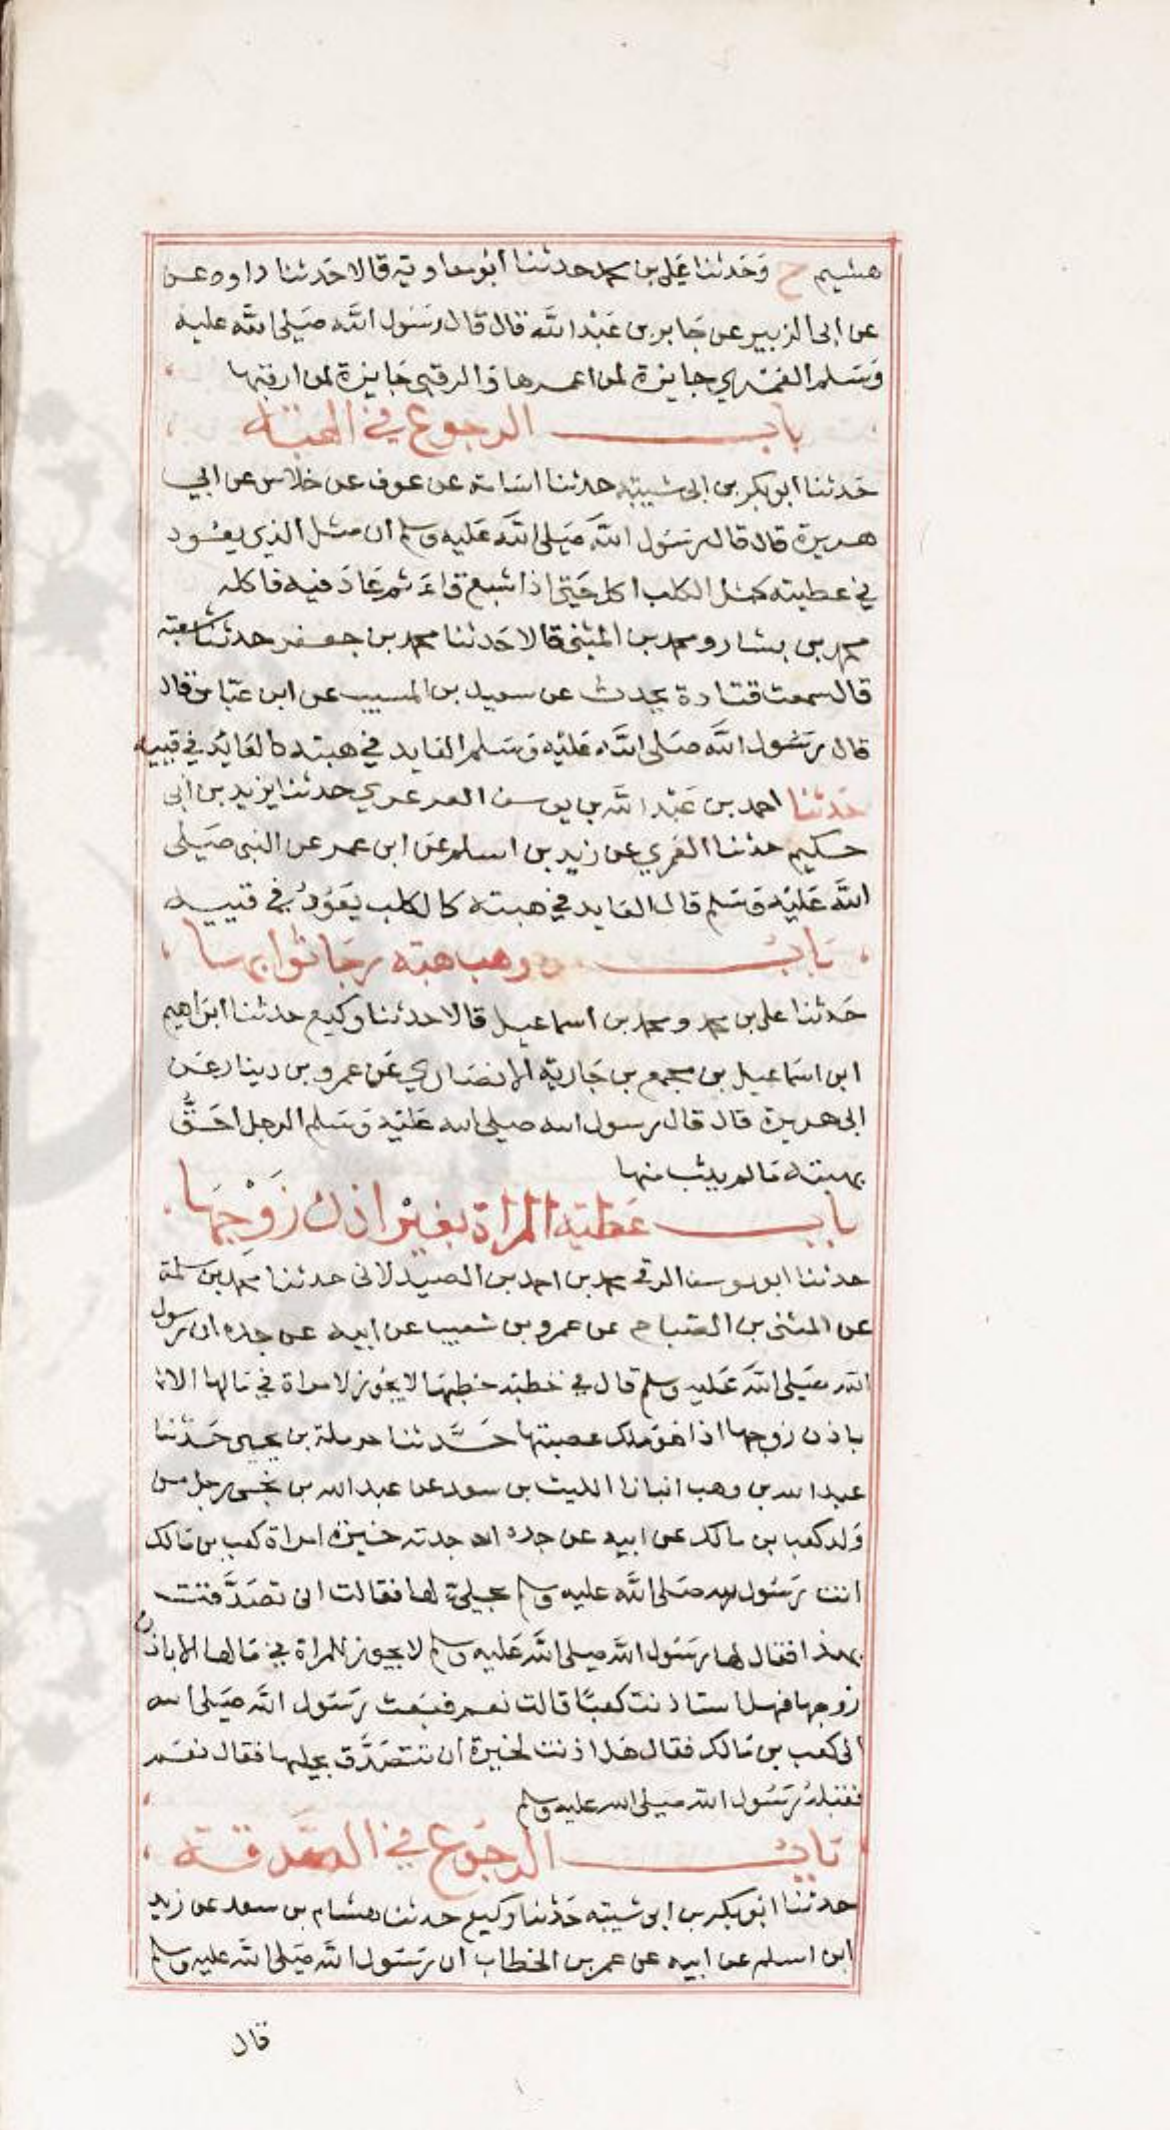 هشيم ح وَحَدثنا عَلي بن محمد حدثنا ابُو معاوية قالا حَدثنا داود عن
عن ابى الزبير عن جَابر بن عَبْد الله قال قال رسُول الله صَلى الله عليه
وَسَلم العُمْرى جايزة لمن اعمرها وَالرقبى جَايزة لمن ارقبها
بابـــ الرجوع في الهبة
حَدثنا ابو بكر بن ابى شيبة حدثنا اسَامة عن عوف عن خلاس عن ابي
هريرة قال قال رسُول الله صَلى الله عَليه وسلم ان مثل الذي يعُود
في عطيته كمثل الكلب اكل حَتى اذا شبع قاءَ ثم عَادَ فيه فاكله
محمد بن بشار ومحمد بن المثنى قالا حَدثنا محمد بن جعفر حدثنا شعبة
قال سمعت قتادة يحدث عن سعيد بن المسيب عن ابن عبّاس قال
قال رسُول الله صَلى الله عَليْه وَسَلم العَايد في هبته كالعَائد في قييه
حَدثنا احمد بن عَبْد الله بن يوسف العرعري حدثنا يزيد بن ابى
حكيم حدثنا العُمري عن زيد بن اسلم عَن ابن عمر عن النبى صَلى
الله عَليْه وَسَلم قال العَايد في هبته كالكلب يَعُوْدُ في قييه
بَابـــ من وهب هبة رجا ثوابها
حَدثنا على بن محمد ومحمد بن اسماعيل قالا حدثنا وكيع حدثنا ابراهيم
ابن اسَماعيل بن مجمع بن جَارية الانصَاري عَن عمرو بن دينار عَن
ابى هريرة قال قال رسول الله صلى الله عَليْه وَسَلم الرجل احَقُّ
بهبته مَا لم يثب منها
بابـــ عَطية المراة بغيْر اذن زَوْجهَا
حدثنا ابو يوسف الرقي محمد بن احمد بن الصيدلانى حدثنا محمد بن سلمة
عن المثنى بن الصَباح عن عمرو بن شعيب عن ابيه عن جده ان رسول
الله صَلى الله عَليه وسلم قال في خطبة خطبهَا لا يجُوز لامراة في مَالها الا
باذن زوجها اذا هو ملك عصمتها حَدَّثنا حرملة بن يحيى حَدثنا
عبد الله بن وهب انبانا الليث بن سعد عن عبد الله بن يحيى رجل من
وَلد كعب بن مالك عن ابيه عن جده ان جدته خيرة امراة كعب بن مَالك
اتت رسُول الله صَلى الله عليه وسلم بحلي لها فقالت انى تصَدَّقت
بهذا فقال لها رسُول الله صلى الله عَليه وسلم لا يجوز للمراة في مَالها الا باذن
زوجها فهل استاذنت كعبًا قالت نعم فبَعث رسُول الله صَلى الله
الى كعب بن مَالك فقال هَل اذنت لخيرة ان تتصَدَّق بحليها فقال نعَم
فقبلهُ رسُول الله صَلى الله عليه وسلم
بَابـــ الرجُوع في الصَدقة
حدثنا ابُو بكر بن ابى شيبة حَدثنا وَكيع حدثنا هشام بن سعد عن زيد
ابن اسلم عن ابيه عن عمر بن الخطاب ان رسُول الله صَلى الله عليه وسلم
قال